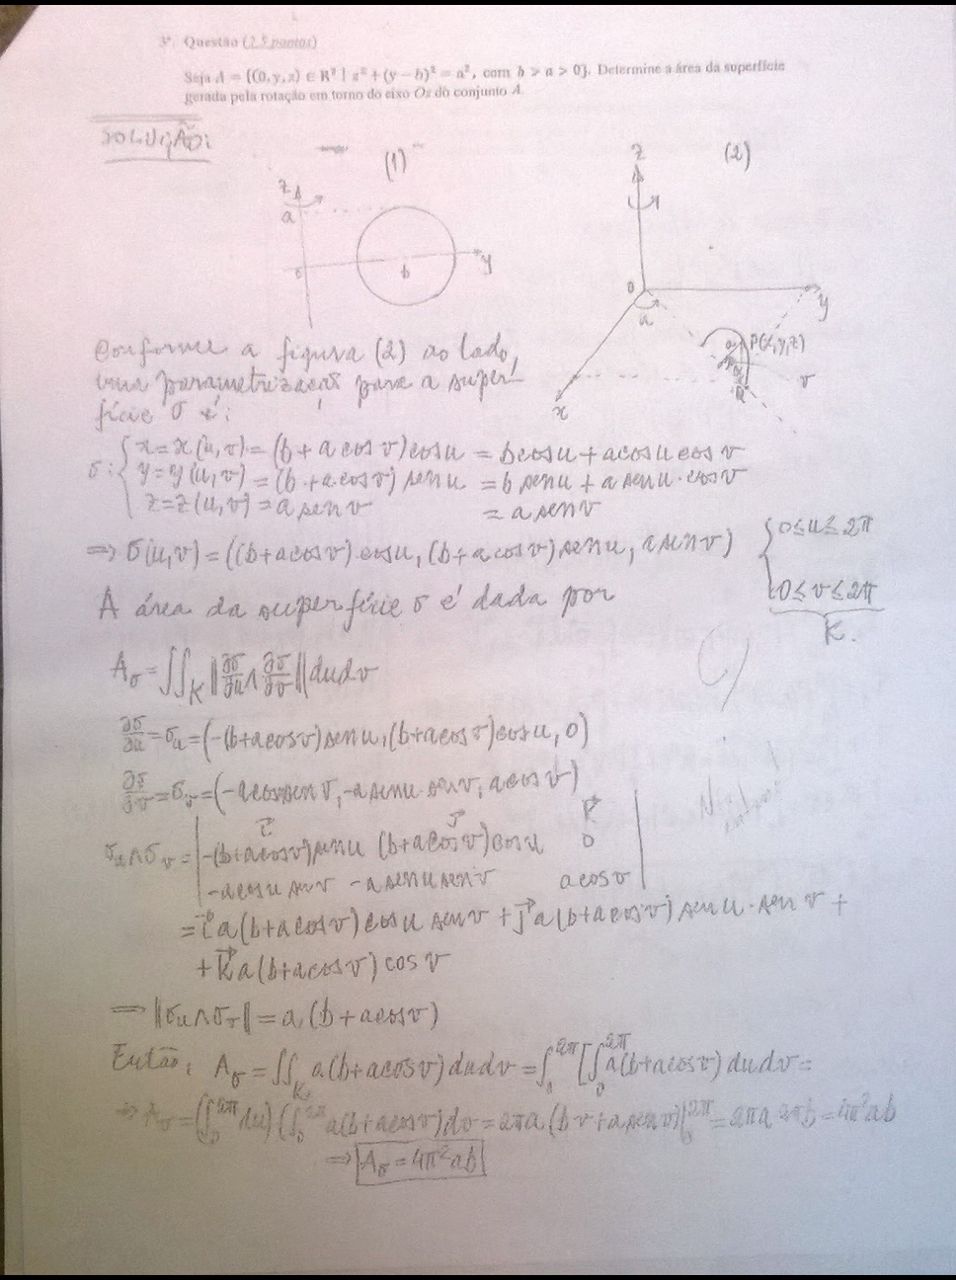 3ª. Questão (2,5 pontos)
Seja A = {(0, y, z) ∈ R³ | z² + (y − b)² = a², com b > a > 0}. Determine a área da superfície
gerada pela rotação em torno do eixo Oz do conjunto A.
SOLUÇÃO:
(1)
z
a
0
b
y
(2)
z
0
a
y
P(x,y,z)
v
x
Conforme a figura (2) ao lado,
uma parametrização para a super-
fície σ é:
σ: { x = x(u,v) = (b + a cos v) cos u = b cos u + a cos u cos v
y = y(u,v) = (b + a cos v) sen u = b sen u + a sen u · cos v
z = z(u,v) = a sen v = a sen v
⇒ σ(u,v) = ((b+a cos v) cos u, (b+a cos v) sen u, a sen v) { 0 ≤ u ≤ 2π
0 ≤ v ≤ 2π
K.
A área da superfície σ é dada por
Aσ = ∬_K ‖∂σ/∂u ∧ ∂σ/∂v‖ du dv
∂σ/∂u = σu = (-(b+a cos v) sen u, (b+a cos v) cos u, 0)
∂σ/∂v = σv = (-a cos u sen v, -a sen u · sen v, a cos v)
σu ∧ σv = | i⃗ j⃗ k⃗ |
-(b+a cos v) sen u (b+a cos v) cos u 0
-a cos u sen v -a sen u sen v a cos v
= i⃗ a(b+a cos v) cos u sen v + j⃗ a(b+a cos v) sen u · sen v +
+ k⃗ a(b+a cos v) cos v
⇒ ‖σu ∧ σv‖ = a (b + a cos v)
Então: Aσ = ∬_K a(b+a cos v) du dv = ∫_0^{2π} [∫_0^{2π} a(b+a cos v) du dv =
⇒ Aσ = (∫_0^{2π} du) (∫_0^{2π} a(b+a cos v) dv = 2πa (bv + a sen v)|_0^{2π} = 2πa 2πb = 4π²ab
⇒ Aσ = 4π²ab